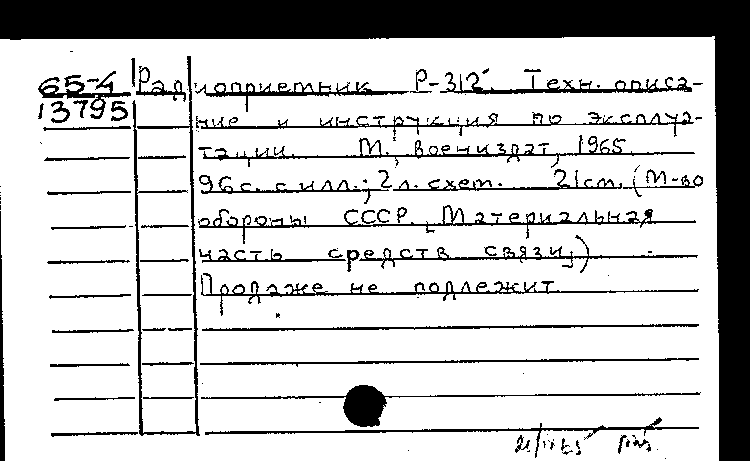 65-4 Радиоприемник Р-312. Техн. описа-
13795 ние и инструкция по эксплуа-
тации. М., Воениздат, 1965.
96 с. с илл.; 2 л. схем. 21 см. (М-во
обороны СССР. [Материальная
часть средств связи])
Продаже не подлежит